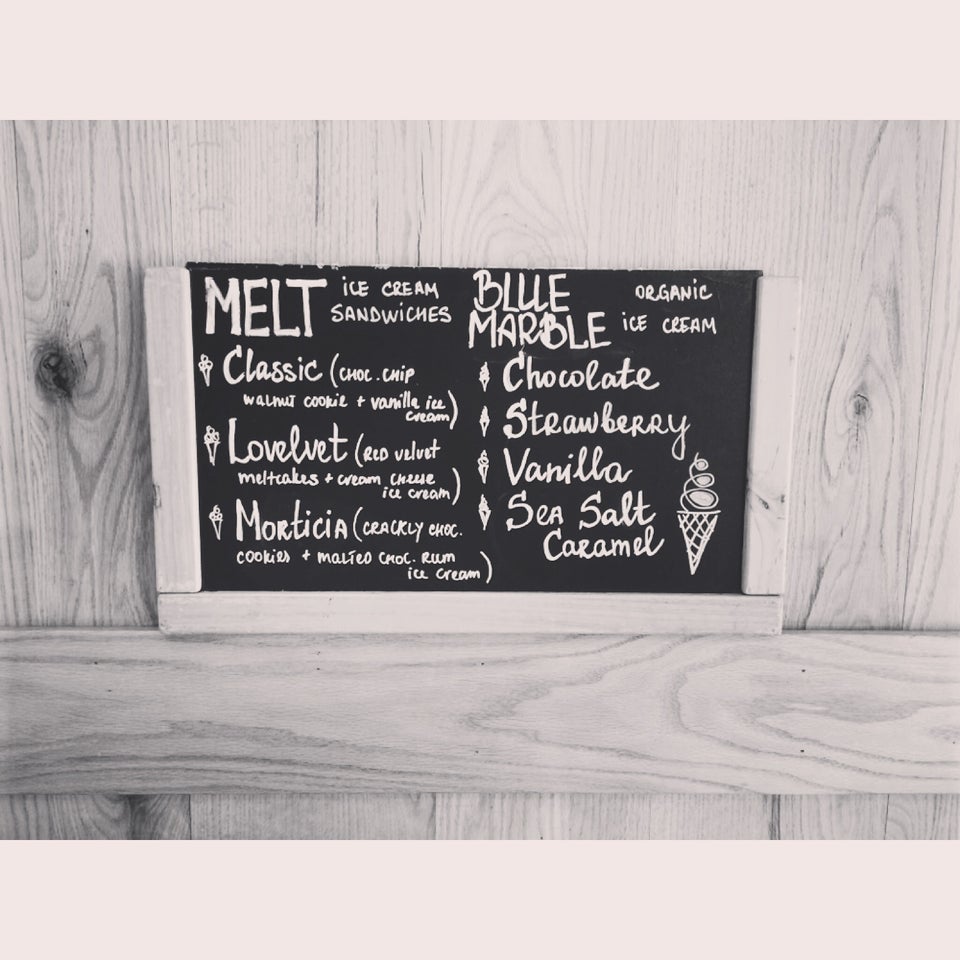 MELT ICE CREAM
SANDWICHES
Classic (CHOC. CHIP
WALNUT COOKIE + vanille ice
cream)
Lovelvet (RED velvet
meltcakes + cream cheese
ice cream)
MORTICIA (CRACKLY CHOC.
COOKIES + MALTED CHOC. RUM
ice cream)
BLUE ORGANIC
MARBLE ICE CREAM
Chocolate
Strawberry
Vanilla
Sea Salt
Caramel